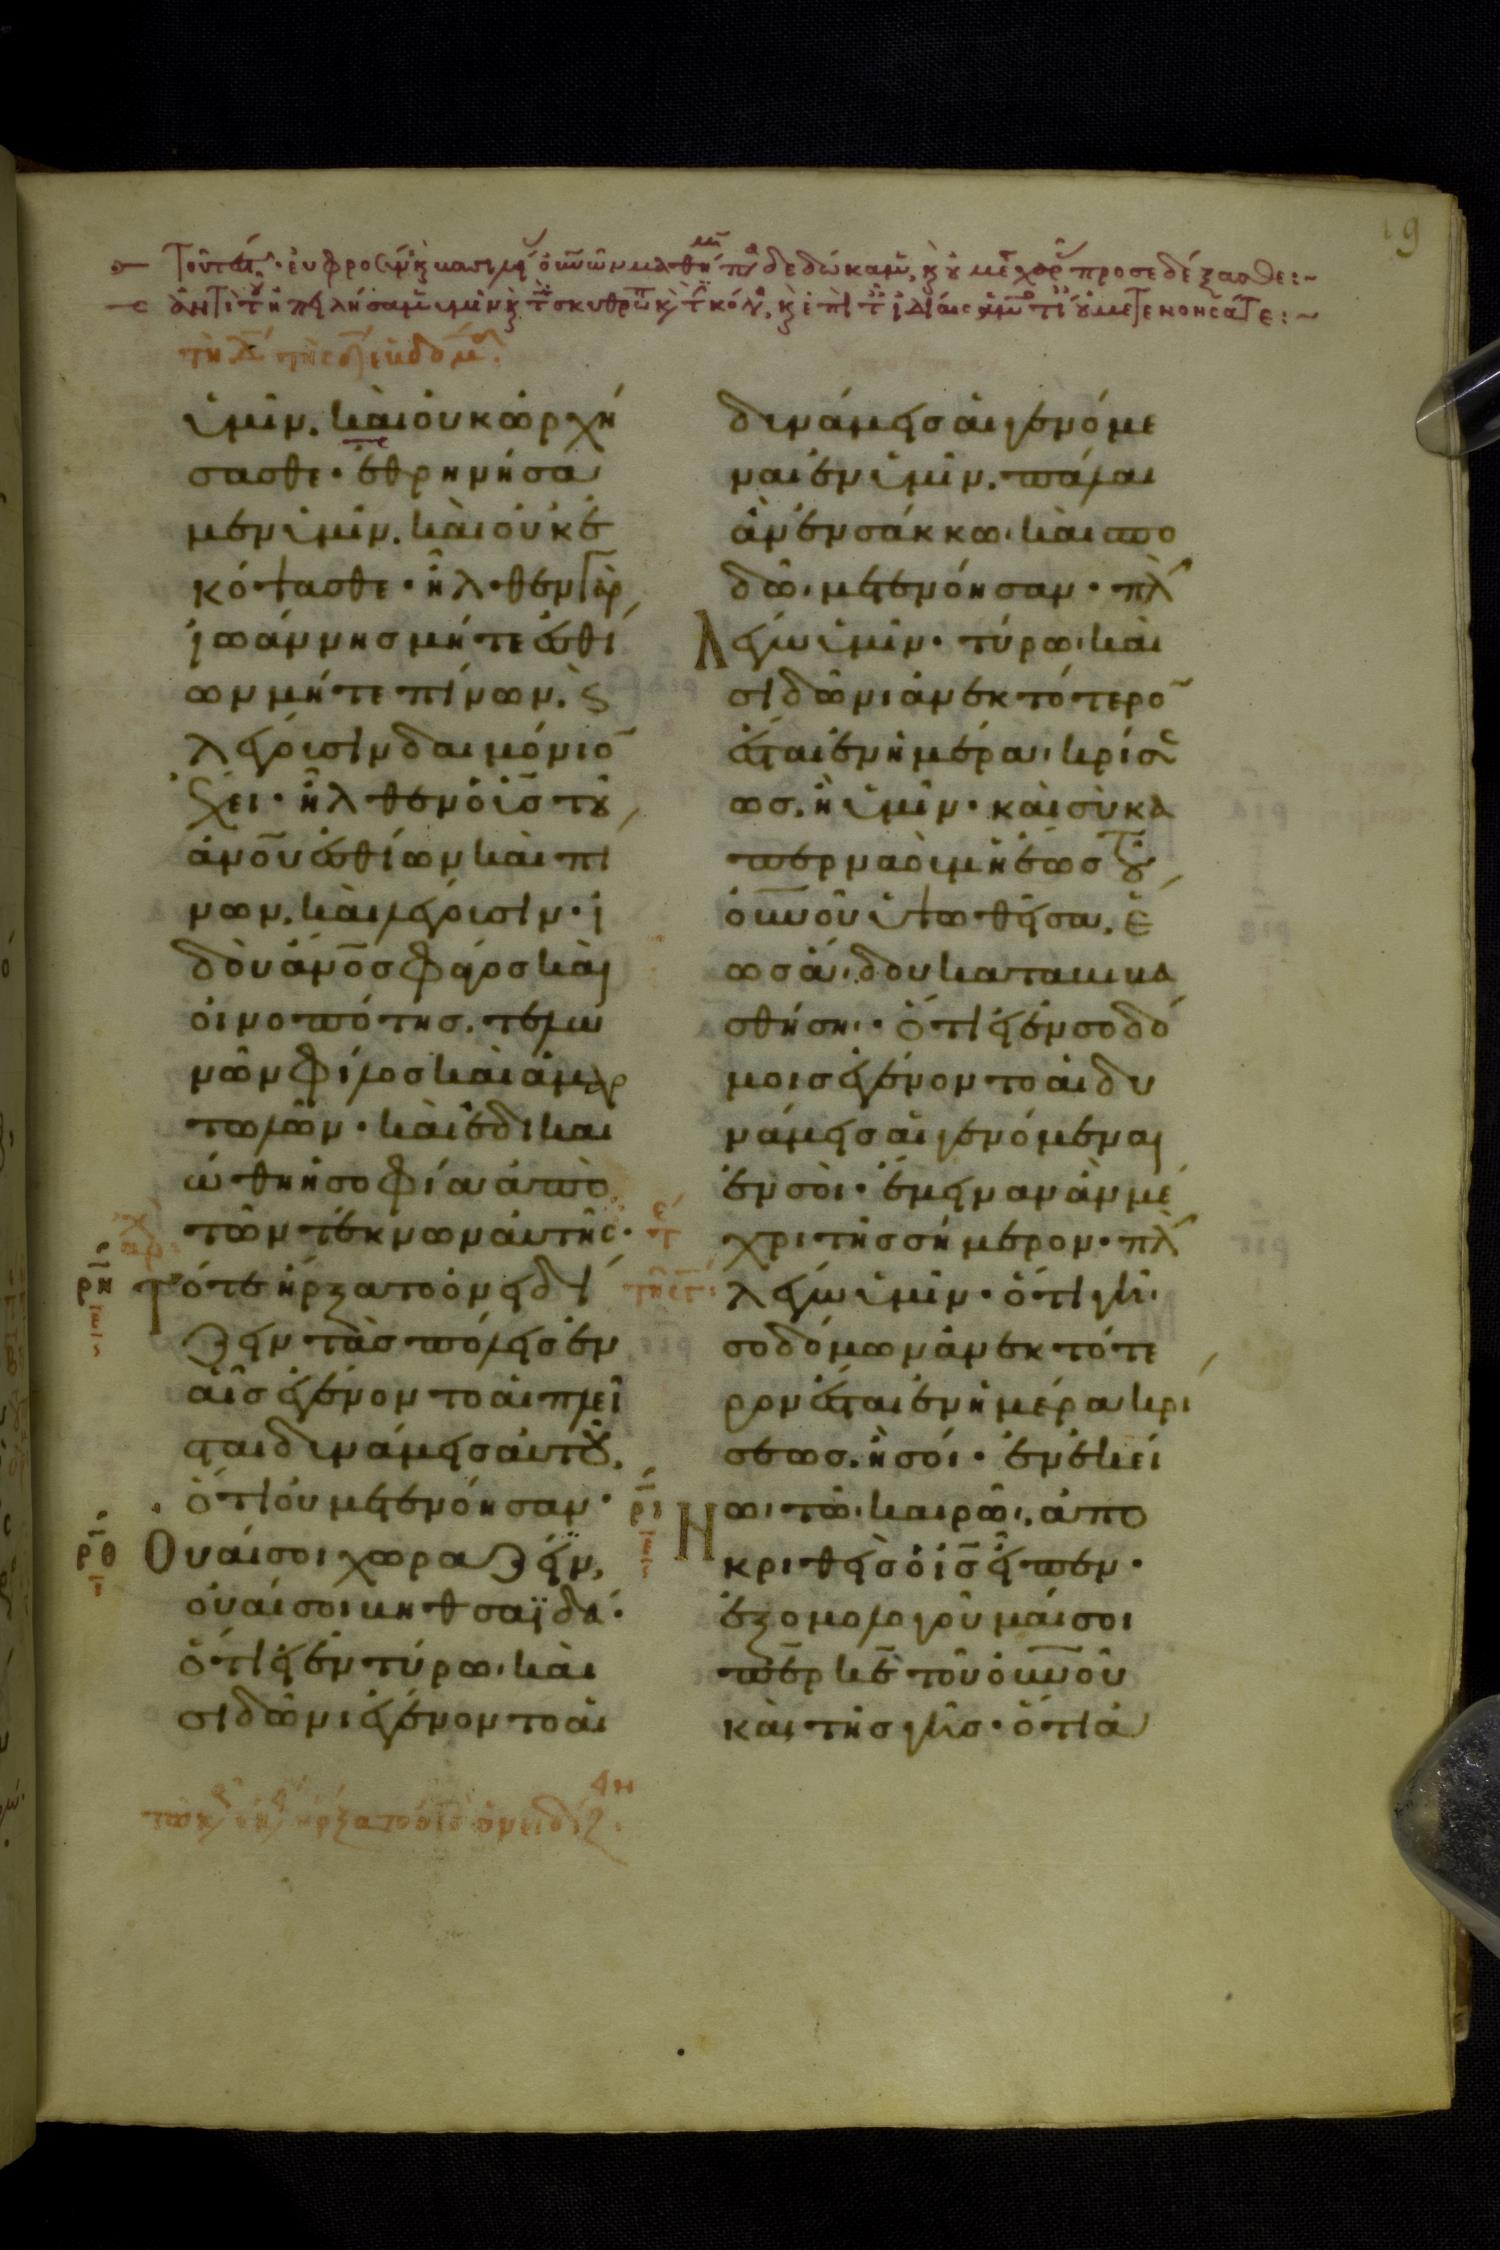 19
ὑμῖν. καὶ οὐκ ὠρχή
σασθε· ἐθρηνήσα
μεν ὑμῖν. καὶ οὐκ ἐ
κόψασθε· ἦλθεν γὰρ
ἰωάννης μήτε ἐσθί
ων μήτε πίνων. καὶ
λέγουσιν δαιμόνιον
ἔχει· ἦλθεν ὁ υἱὸς τοῦ
ἀνου ἐσθίων καὶ πί
νων. καὶ λέγουσιν· ἰ
δοὺ ἀνος φάγος καὶ
οἰνοπότης. τελω
νῶν φίλος καὶ ἁμαρ
τωλῶν· καὶ ἐδικαι
ώθη ἡ σοφία ἀπὸ
τῶν τέκνων αὐτῆς·
ρη Τότε ἤρξατο ὀνειδί
ζειν τὰς πόλεις ἐν
αἷς ἐγένοντο αἱ πλεῖ
σται δυνάμεις αὐτοῦ.
ὅτι οὐ μετενόησαν·
ρθ Οὐαί σοι χωραζείν,
οὐαί σοι βηθσαϊδά·
ὅτι εἰ ἐν τύρω καὶ
σιδῶνι ἐγένοντο αἱ
δυνάμεις αἱ γενόμε
ναι ἐν ὑμῖν. πάλαι
ἂν ἐν σάκκω καὶ σπο
δῶ μετενόησαν· πλὴν
Λέγω ὑμῖν· τύρω καὶ
σιδῶνι ἀνεκτότερον
ἔσται ἐν ἡμέρα κρίσε
ως. ἢ ὑμῖν· καὶ σὺ κα
περναοὺμ ἡ ἕως τοῦ
οὐνοῦ ὑψωθεῖσα, ἕ
ως ἅδου καταβιβα
σθήση· ὅτι εἰ ἐν σοδό
μοις ἐγένοντο αἱ δυ
νάμεις αἱ γενόμεναι
ἐν σοὶ· ἔμειναν ἂν μέ
χρι τῆς σήμερον· πλὴν
λέγω ὑμῖν· ὅτι γῆ
σοδόμων ἀνεκτότε
ρον ἔσται ἐν ἡμέρα κρί
σεως. ἢ σοί· ἐν ἐκεί
ρι Νω τῶ καιρῶ, ἀπο
κριθεὶς ὁ ις εἶπεν·
ἐξομολογοῦμαί σοι
περ κε τοῦ οὐνοῦ
καὶ τῆς γῆς· ὅτι ἀ